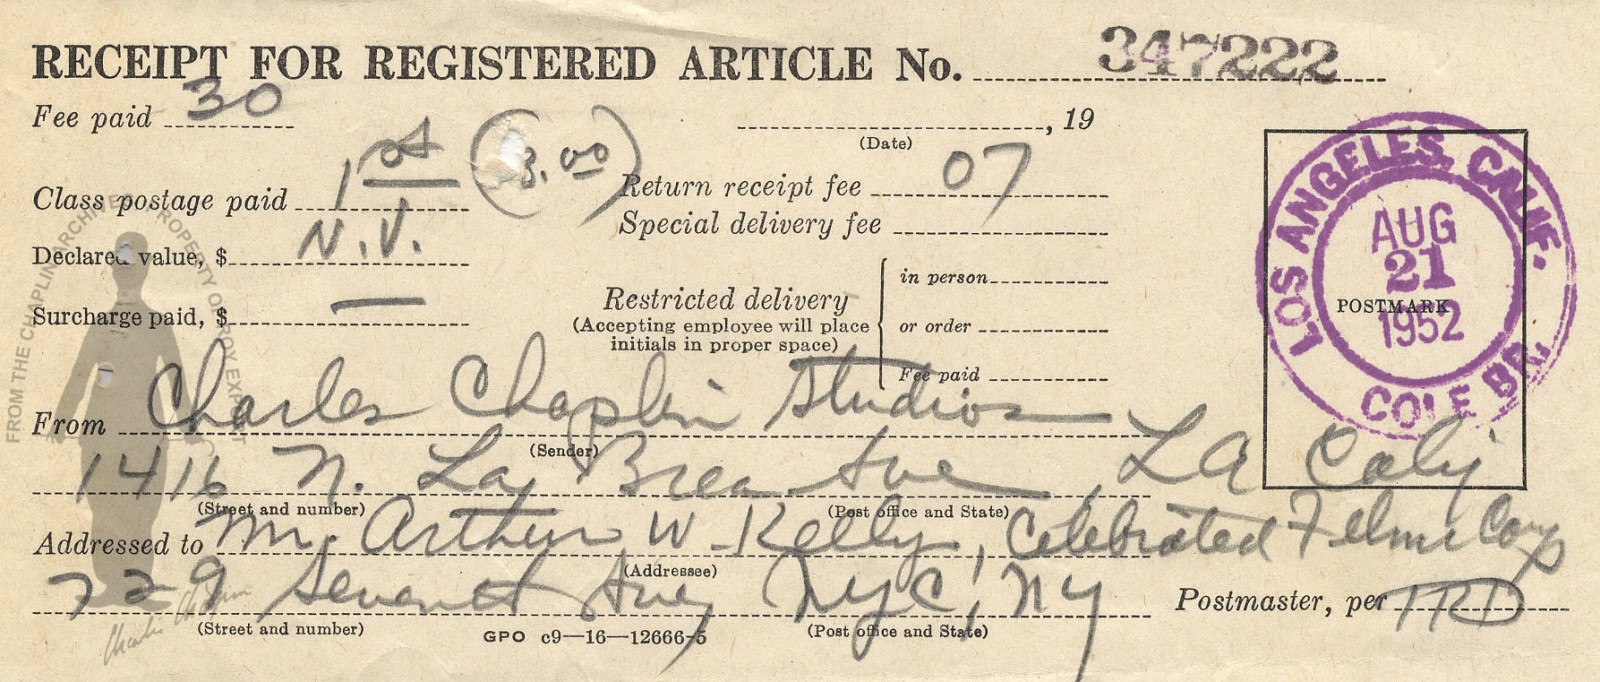 RECEIPT FOR REGISTERED ARTICLE No. 347222
Fee paid 30
, 19
(Date)
Class postage paid 1st (3.00)
Return receipt fee 07
Special delivery fee
Declared value, $ N.V.
Surcharge paid, $ —
Restricted delivery
(Accepting employee will place
initials in proper space)
in person
or order
Fee paid
LOS ANGELES, CALIF.
AUG
21
1952
COLE BR.
POSTMARK
From Charles Chaplin Studios
(Sender)
1416 N. La Brea Ave, LA Calif
(Street and number) (Post office and State)
Addressed to Mr. Arthur W. Kelly, Celebrated Films Corp
(Addressee)
729 Seventh Ave, NYC, NY
(Street and number) (Post office and State)
GPO c9—16—12666-5
Postmaster, per TRD
FROM THE CHAPLIN ARCHIVES PROPERTY OF ROY EXPORT
Charlie Chaplin